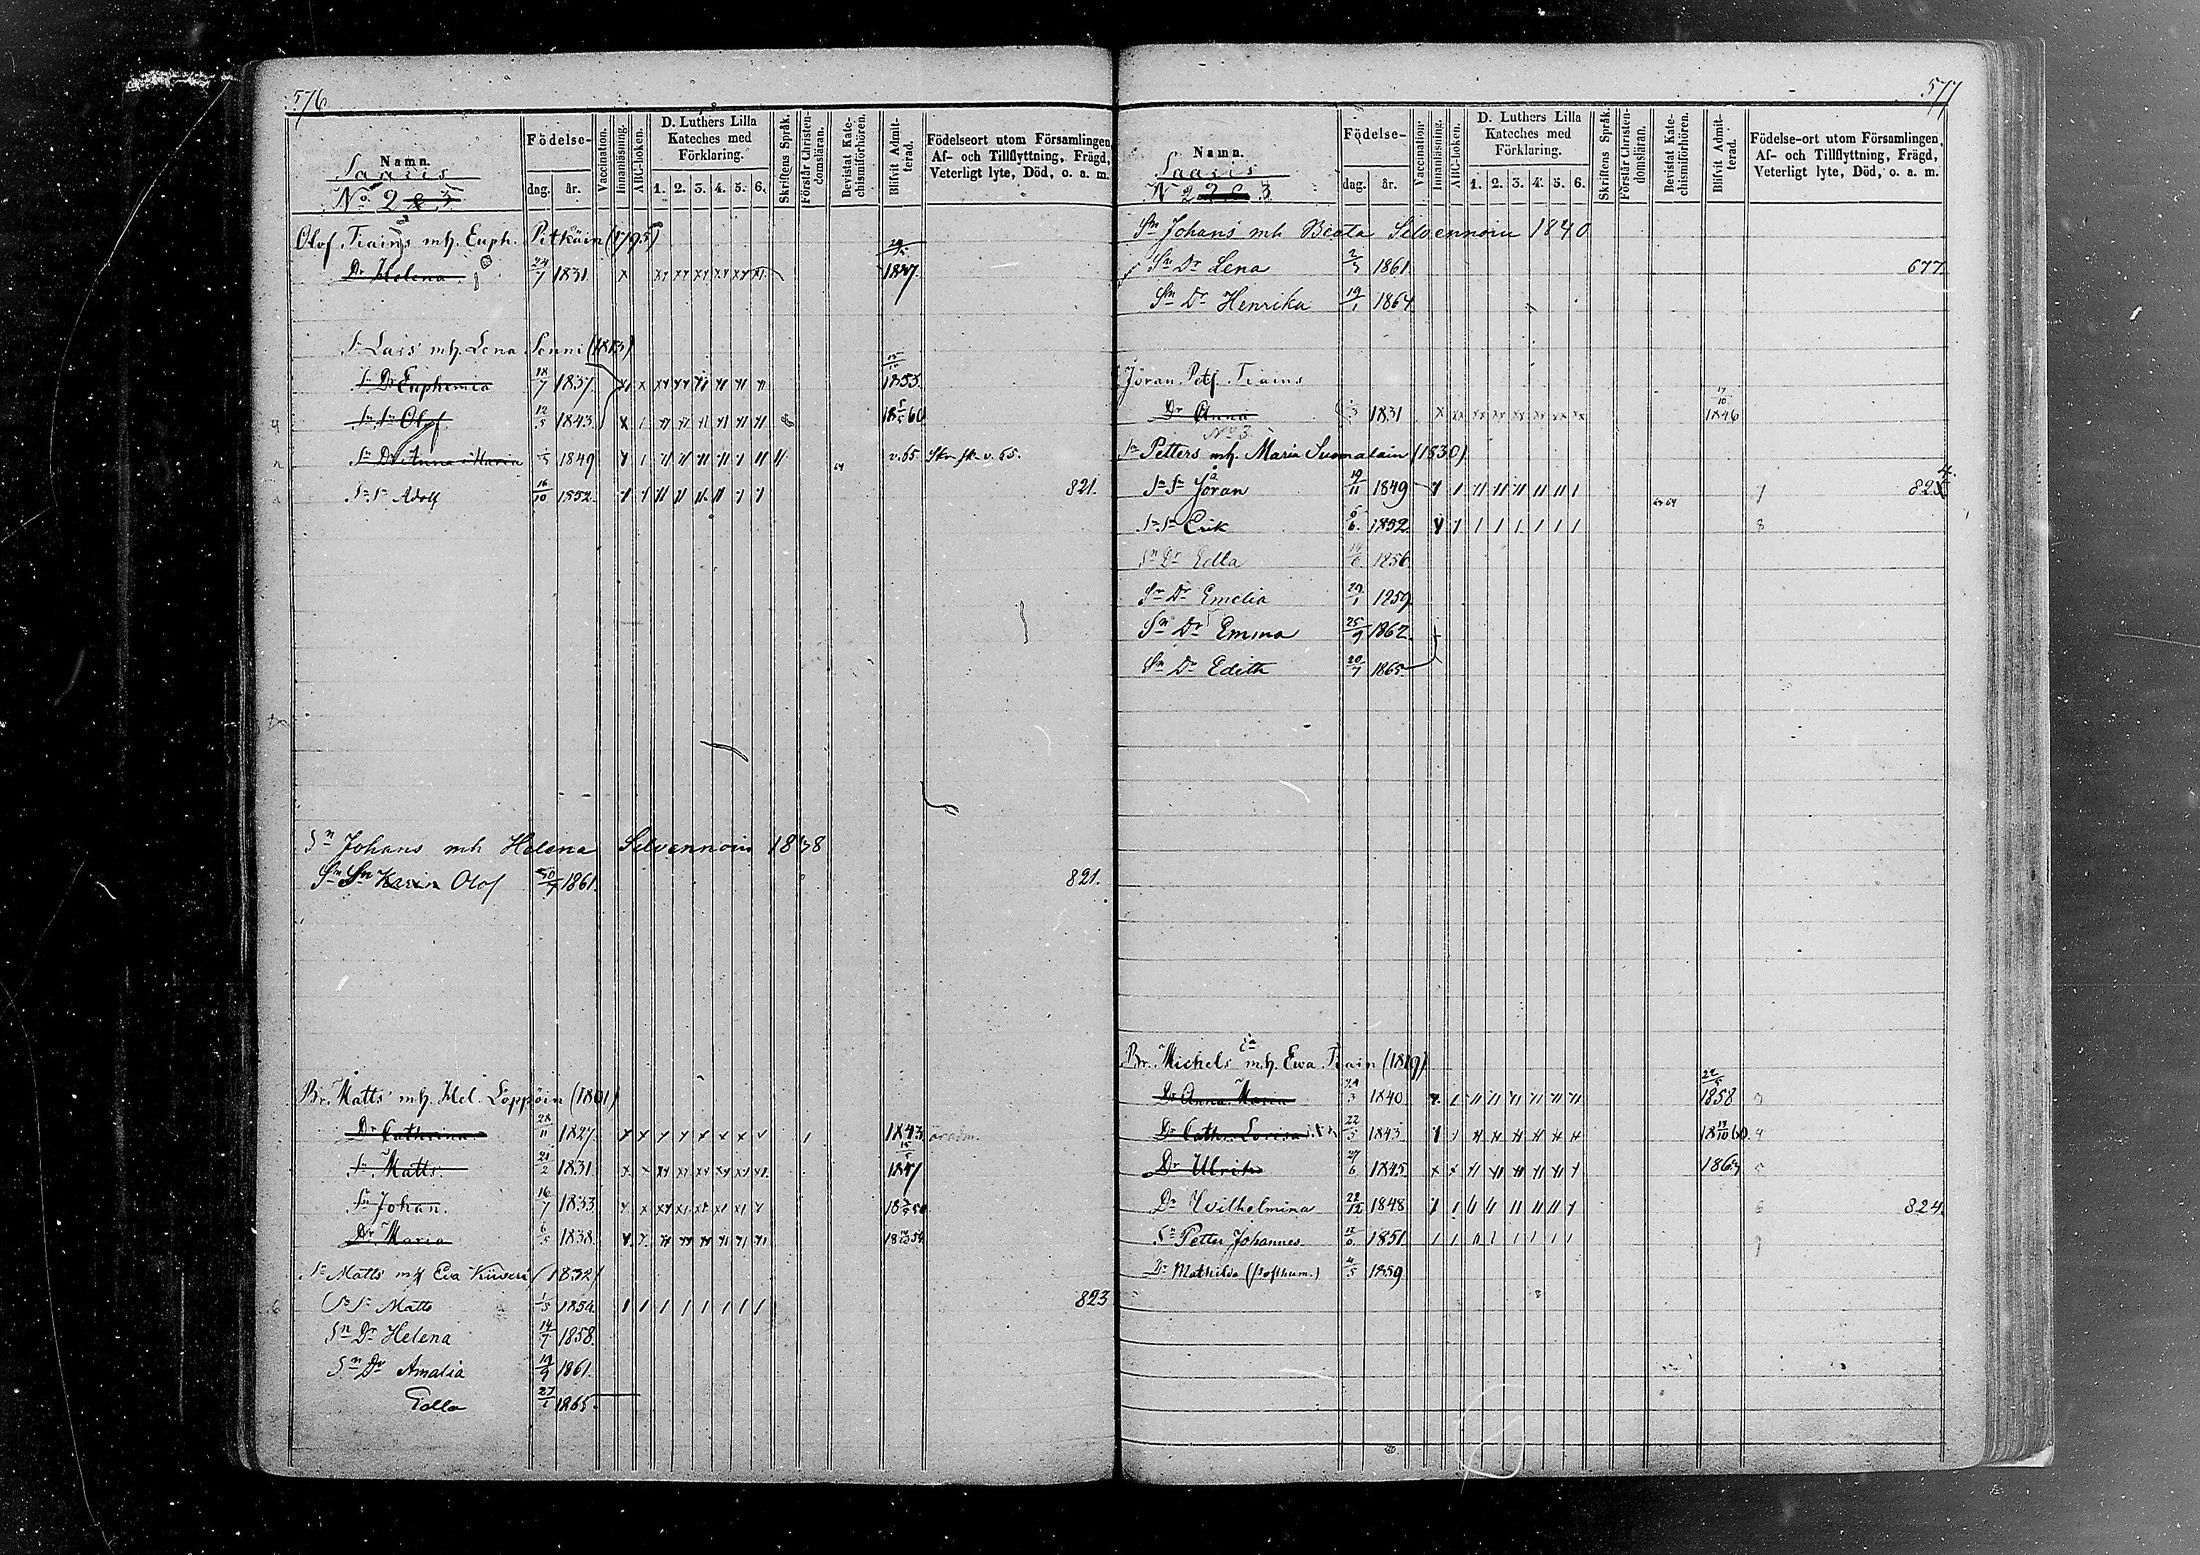 576
Namn. Födelse- Vaccination. Innanläsning. ABC-boken. D. Luthers Lilla Kateches med Förklaring. Skriftens Språk. Förstår Christendomsläran. Bevistat Katechismiförhören. Blifvit Admitterad. Födelseort utom Församlingen, Af- och Tillflyttning, Frägd, Veterligt lyte, Död, o. a. m.
dag. år. 1. 2. 3. 4. 5. 6.
Saaris
No 2 & 3
Olof Tiains mh. Euph. Pitkäin (1795)
Dr Helena 24/7 1831 1847
Sn Lars' mh. Lena Sonni (1813)
Sn Dr Euphemia 18/7 1837 1855
Sn Sn Olof 12/5 1843 18 60
Sn Dr Anna Maria 1849 64 v. 65 Skr. sk. v. 65.
Sn Sn Adolf 16/10 1852 821.
Sn Johans mh Helena Silvennoin 1838
Sn Sn Olof 30/7 1861 821.
Br. Matts' mh. Hel. Löppöin (1801)
Dr Catharina 28/11 1827 1843
Sn Matts 21/2 1831 1847
Sn Johan 16/7 1833 18 50
Dr Maria 6/5 1838 18 54
Sn Matts mh Eva Kiiveri (1832)
6 Sn Sn Matts 1/5 1854 823
Sn Dr Helena 14/7 1858
Sn Dr Amalia 19/9 1861.
Edla 27/1 1865
577
Namn. Födelse- Vaccination. Innanläsning. ABC-boken. D. Luthers Lilla Kateches med Förklaring. Skriftens Språk. Förstår Christendomsläran. Bevistat Katechismiförhören. Blifvit Admitterad. Födelse-ort utom Församlingen, Af- och Tillflyttning, Frägd, Veterligt lyte, Död, o. a. m.
dag. år. 1. 2. 3. 4. 5. 6.
Saaris
No 2 3
Sn Johans mh Beata Silvennoin 1840
Sn Dr Lena 2/3 1861 677
Sn Dr Henrika 19/1 1864
Jöran Petf. Tiains
Dr Anna 1831 17/10 1846
No 3.
Sn Petters mh. Maria Suomalain (1830)
Sn Sn Jöran 19/11 1849 63 64 7 824
Sn Sn Erik 5/6 1852 8
Sn Dr Edla 1856
Sn Dr Emelia 29/1 1859
Sn Dr Emma 25/9 1862
Sn Dr Edith 20/7 1865
Br. Michels mh. Ewa Tiain (1819)
Dr Anna Maria 24/3 1840 22/5 1858 3
Dr Cath. Lovisa 22/5 1843 18 60 4
Dr Ulrika 27/6 1845 1863 5
Dr Wilhelmina 22/12 1848 6 824.
Sn Petter Johannes 1851
Dr Mathilda (posthum.) 4/5 1859